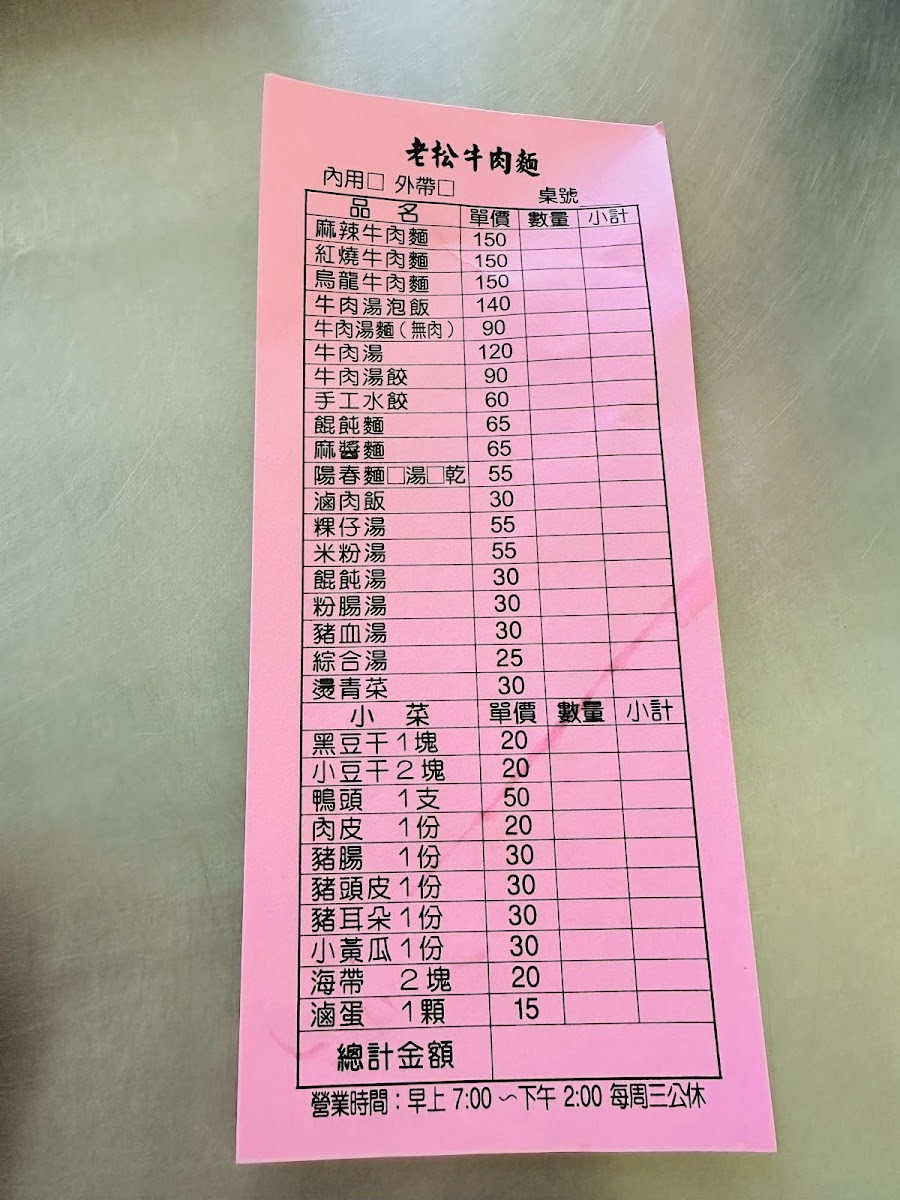 老松牛肉麵
內用□ 外帶□ 桌號
品 名 單價 數量 小計
麻辣牛肉麵 150
紅燒牛肉麵 150
烏龍牛肉麵 150
牛肉湯泡飯 140
牛肉湯麵(無肉) 90
牛肉湯 120
牛肉湯餃 90
手工水餃 60
餛飩麵 65
麻醬麵 65
陽春麵□湯□乾 55
滷肉飯 30
粿仔湯 55
米粉湯 55
餛飩湯 30
粉腸湯 30
豬血湯 30
綜合湯 25
燙青菜 30
小 菜 單價 數量 小計
黑豆干1塊 20
小豆干2塊 20
鴨頭 1支 50
肉皮 1份 20
豬腸 1份 30
豬頭皮1份 30
豬耳朵1份 30
小黃瓜1份 30
海帶 2塊 20
滷蛋 1顆 15
總計金額
營業時間:早上 7:00 ~下午 2:00 每周三公休